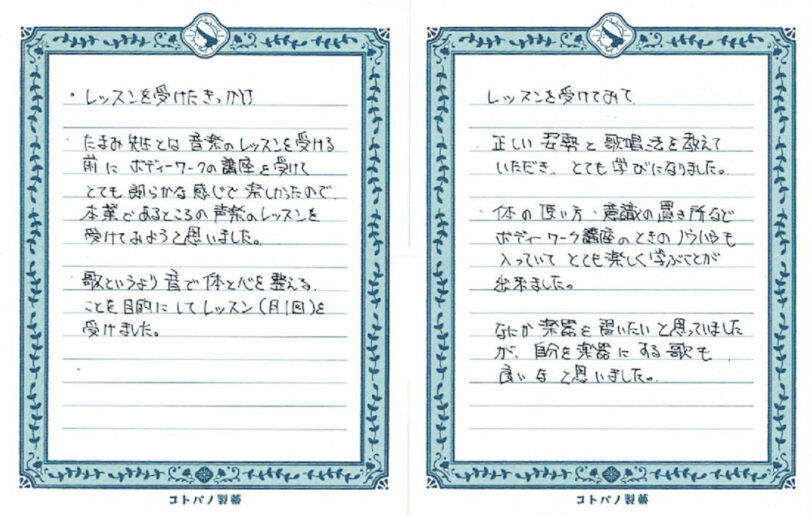 ・レッスンを受けたきっかけ
たまみ先生とは音楽のレッスンを受ける
前にボディーワークの講座を受けて
とても朗らかな感じで楽しかったので、
本業であるところの声楽のレッスンを
受けてみようと思いました。
歌というより音で体と心を整える
ことを目的にしてレッスン(月1回)を
受けました。
コトバノ製薬
レッスンを受けてみて
正しい姿勢と歌唱法を教えて
いただき、とても学びになりました。
・体の使い方・意識の置き所など
ボディーワーク講座のときのノウハウも
入っていてとても楽しく学ぶことが
出来ました。
なにか楽器を習いたいと思っていました
が、自分を楽器にする歌も
良いなと思いました。
コトバノ製薬